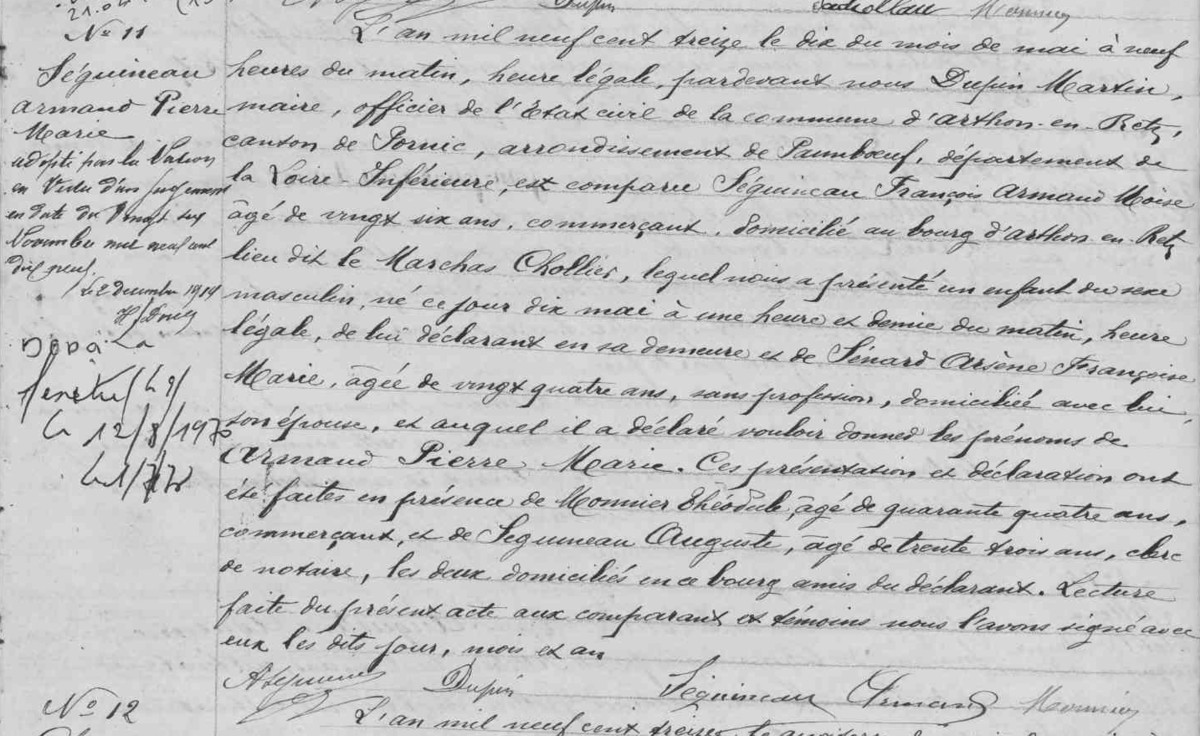 21.04
Dupin
Monnier
No 11
Séguineau
Armand Pierre
Marie
adopté par la Nation
en vertu d'un jugement
en date du vingt six
Novembre mil neuf cent
dix neuf.
Le 2 décembre 1919
Dcd à La
12/8/197
L'an mil neuf cent treize le dix du mois de mai à neuf
heures du matin, heure légale, pardevant nous Dupin Martin,
maire, officier de l'Etat civil de la commune d'Arthon-en-Retz,
canton de Pornic, arrondissement de Paimbœuf, département de
la Loire-Inférieure, est comparu Séguineau François Armand Moïse
âgé de vingt six ans, commerçant, domicilié au bourg d'Arthon-en-Retz
lieu dit le Marchas Chollier, lequel nous a présenté un enfant du sexe
masculin, né ce jour dix mai à une heure et demie du matin, heure
légale, de lui déclarant en sa demeure et de Sénard Arsène Françoise
Marie, âgée de vingt quatre ans, sans profession, domiciliée avec lui,
son épouse, et auquel il a déclaré vouloir donner les prénoms de
Armand Pierre Marie. Ces présentation et déclaration ont
été faites en présence de Monnier Théodule, âgé de quarante quatre ans,
commerçant, et de Séguineau Auguste, âgé de trente trois ans, clerc
de notaire, les deux domiciliés en ce bourg amis du déclarant. Lecture
faite du présent acte aux comparant et témoins nous l'avons signé avec
eux les dits jour, mois et an
Dupin Séguineau Armand Monnier
No 12
L'an mil neuf cent treize, le